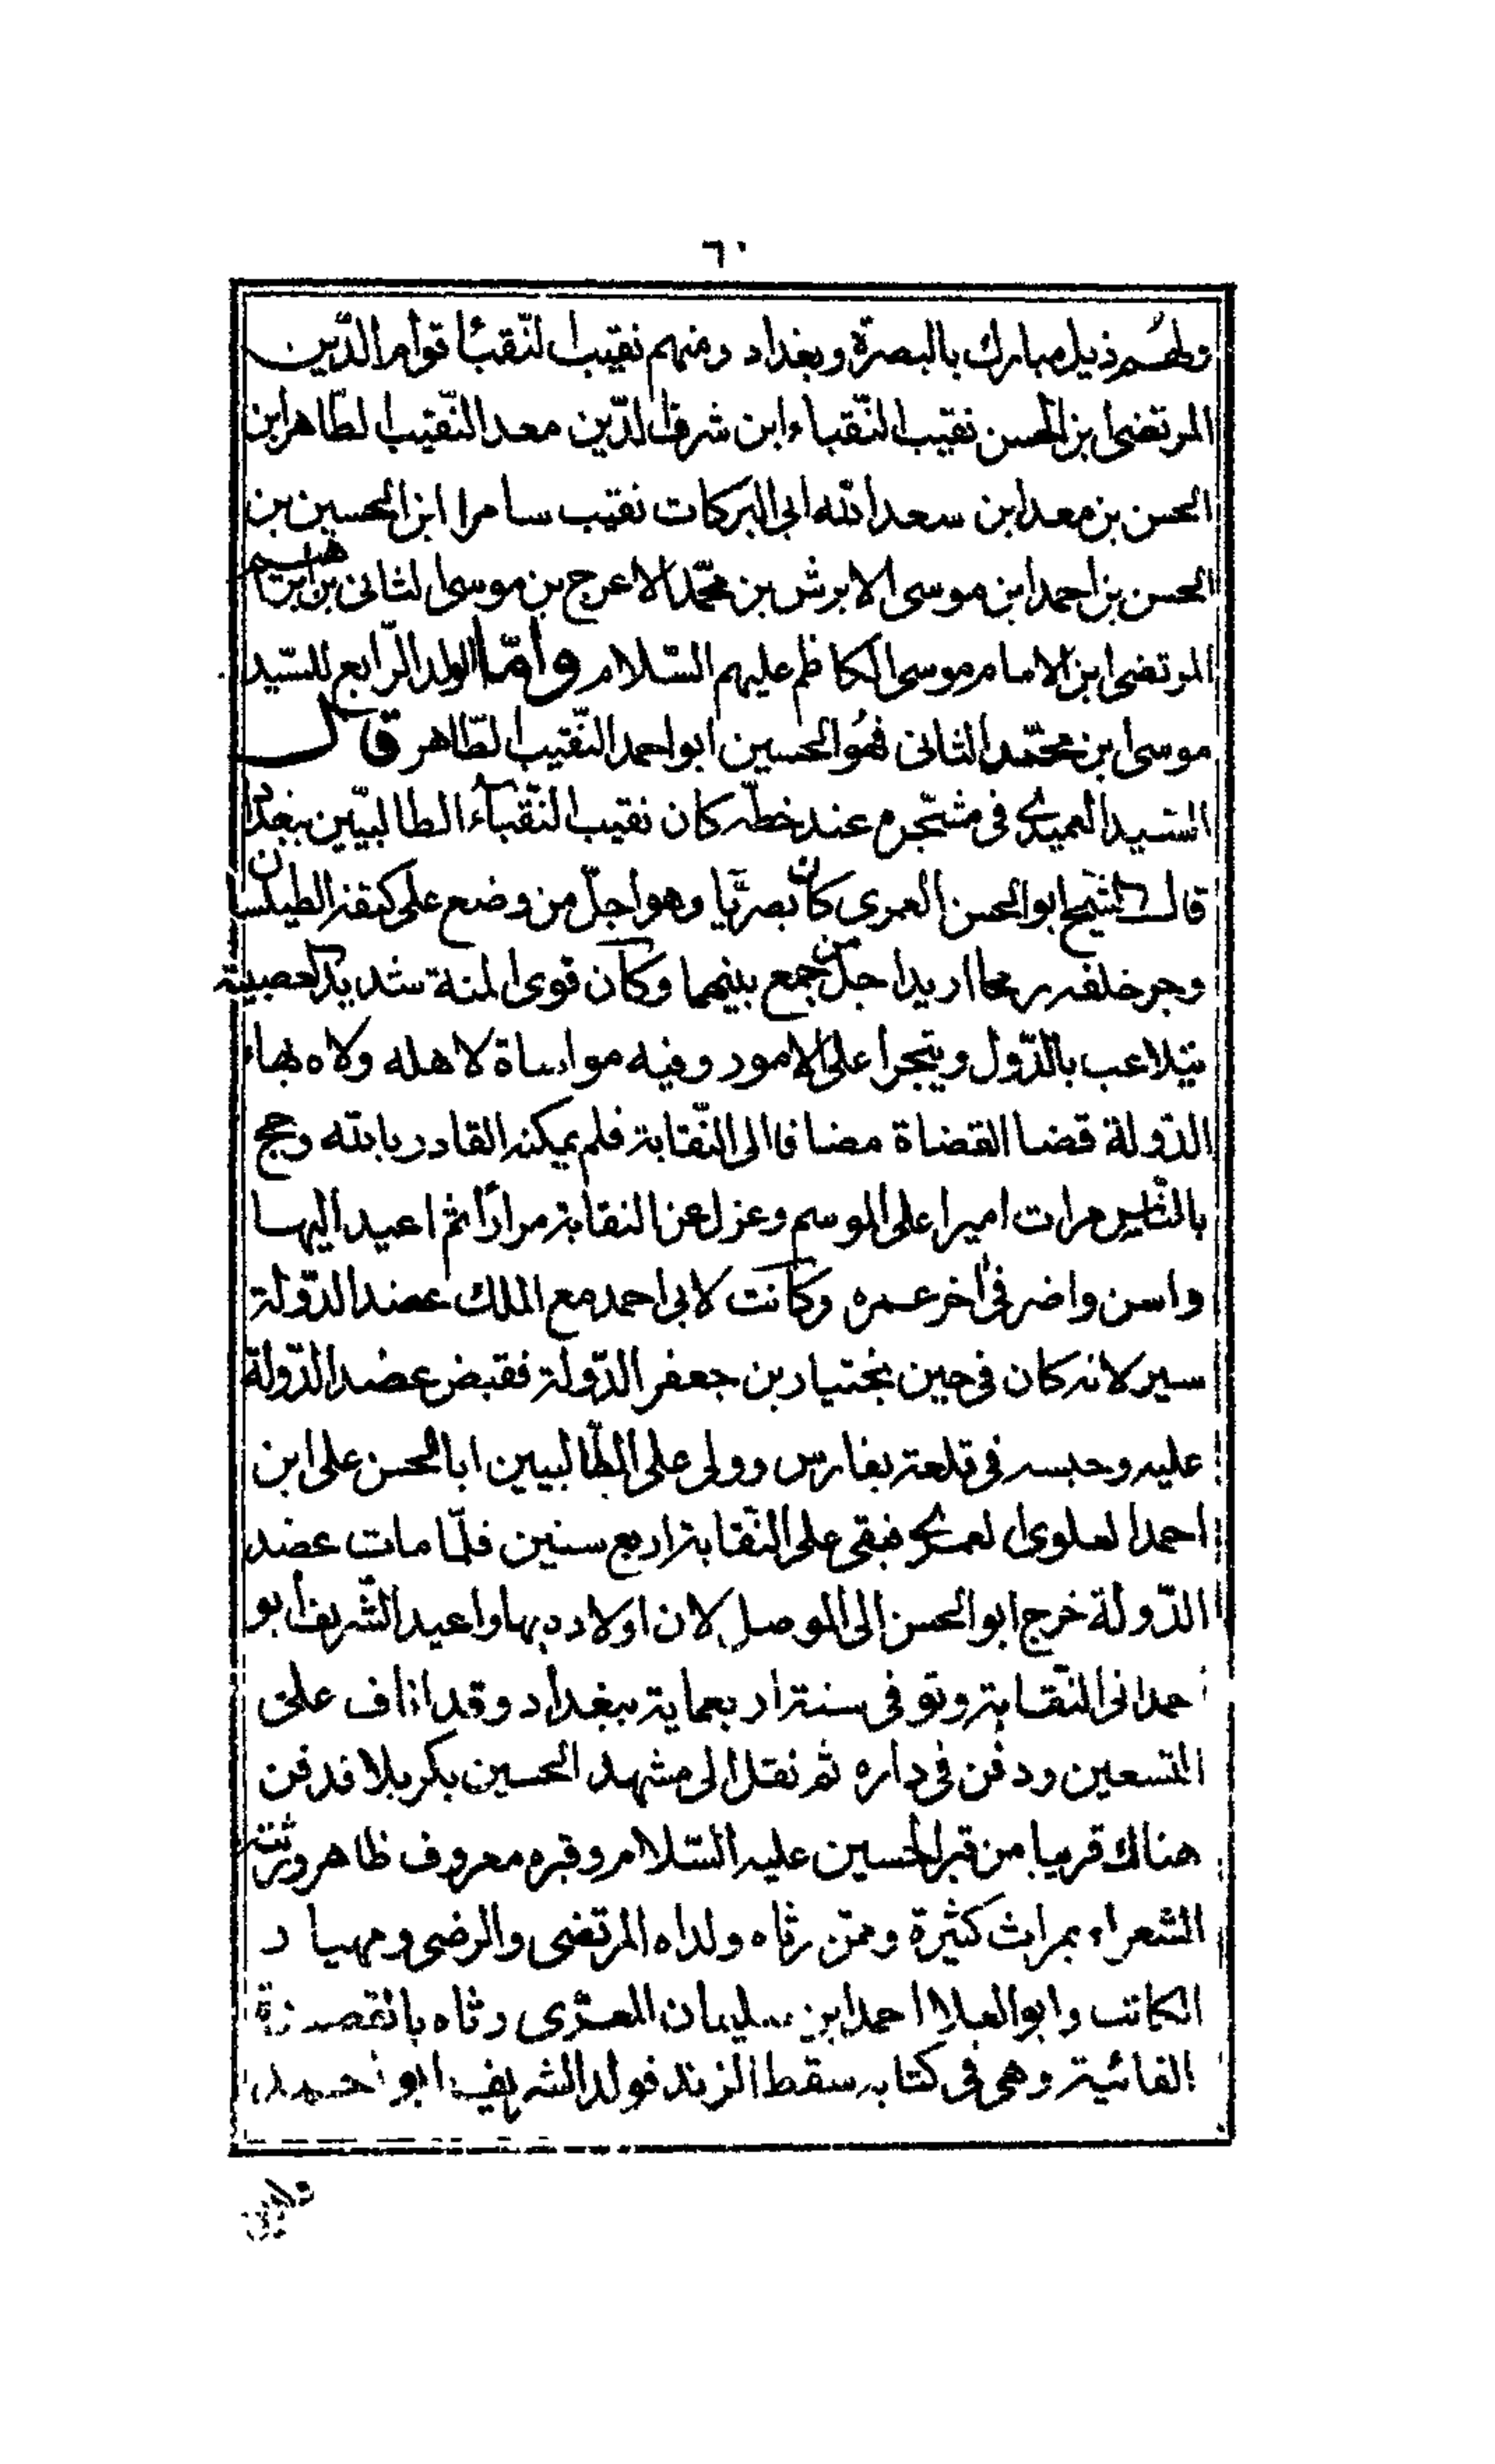 ٦٠
ولهُم ذيل مبارك بالبصرة وبغداد ومنهم نقيب النّقبٔا قوام الدّين
المرتضى ابن الحسن نقيب النّقباء ابن شرف الدّين معد النّقيب الطّاهر ابن
الحسن بن معد ابن سعد الله ابى البركات نقيب سامرا ابن الحسين بن
الحسن بن احمد ابن موسى الابرش بن محمّد الاعرج بن موسى الثانى بن ابراهيم
المرتضى ابن الامام موسى الكاظم عليهم السّلام وامّا الولد الرّابع للسّيد
موسى ابن محمّد الثانى فهُو الحسين ابو احمد النّقيب الطّاهر قال
السّيد العميدى فى مشجّره عند خطّه كان نقيب النّقبآء الطالبيّين ببغداد
قال الشّيخ ابو الحسن العمرى كان بصريّا وهو اجلّ من وضع على كتفه الطيلسان
وجر خلفه رمحا اريد اجل من جمع بينهما وكان قوى المنة شديد العصبية
يتلاعب بالدّول ويتجرا على الامور وفيه مواساة لاهله ولاه بهاء
الدّولة قضا القضاة مضافا الى النّقابة فلم يمكنه القادر بالله وحج
بالنّاس مرات اميرا على الموسم وعزل عن النقابة مرارًا ثم اعيد اليها
واسن واضر فى أخر عمره وكانت لابى احمد مع الملك عضد الدّولة
سير لانه كان فى حين بختيار بن جعفر الدّولة فقبض عضد الدّولة
عليه وحبسه فى قلعة بفارس وولى على الطّالبيين ابا الحسن على ابن
احمد العلوى العمرى فبقى على النّقابة اربع سنين فلمّا مات عضد
الدّولة خرج ابو الحسن الى الموصل لان اولاده بها واعيد الشّريف أبو
احمد الى النّقابة وتوفى سنة اربعماية ببغداد وقد اناف على
التسعين ودفن فى داره ثم نقل الى مشهد الحسين بكربلا فدفن
هناك قريبا من قبر الحسين عليه السّلام وقبره معروف ظاهر ورثته
الشعراء بمراث كثيرة وممّن رثاه ولداه المرتضى والرضى ومهيار
الكاتب وابو العلا احمد ابن سليمان المعرّى رثاه بالقصيدة
الفائية وهى فى كتابه سقط الزند فولد الشريف ابو احمد